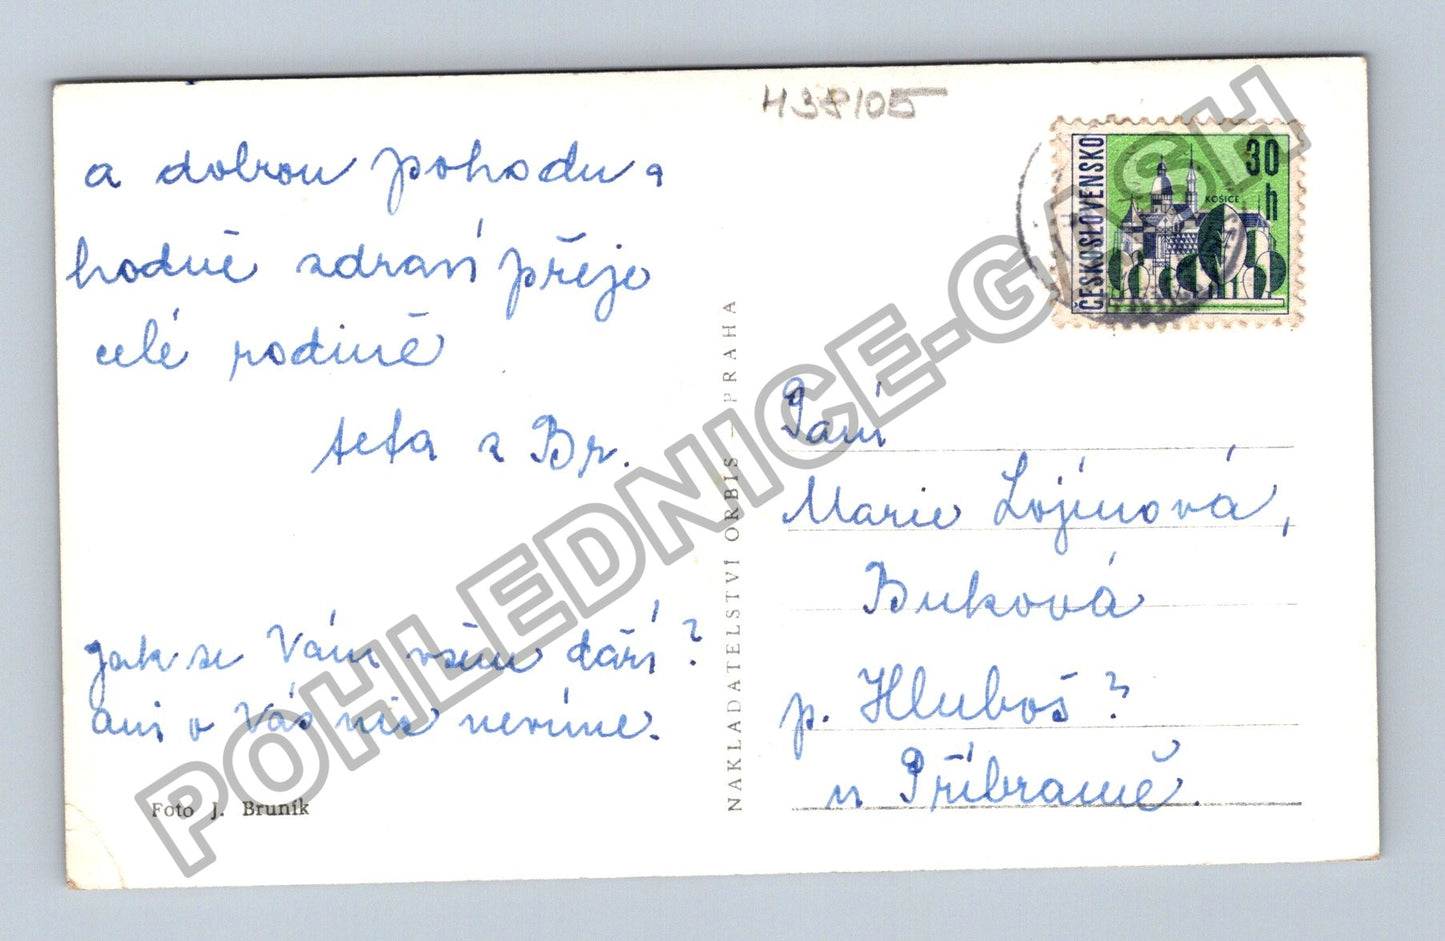 H38105
a dobrou pohodu a
hodně zdraví přeje
celé rodině
teta z Br.
jak se Vám všem daří?
ani o Vás nic nevíme.
Foto J. Bruník
NAKLADATELSTVÍ ORBIS — PRAHA
ČESKOSLOVENSKO
30
h
KOŠICE
Paní
Marie Lojínová,
Buková
p. Hluboš?
u Příbramě.
POHLEDNICE-GASH